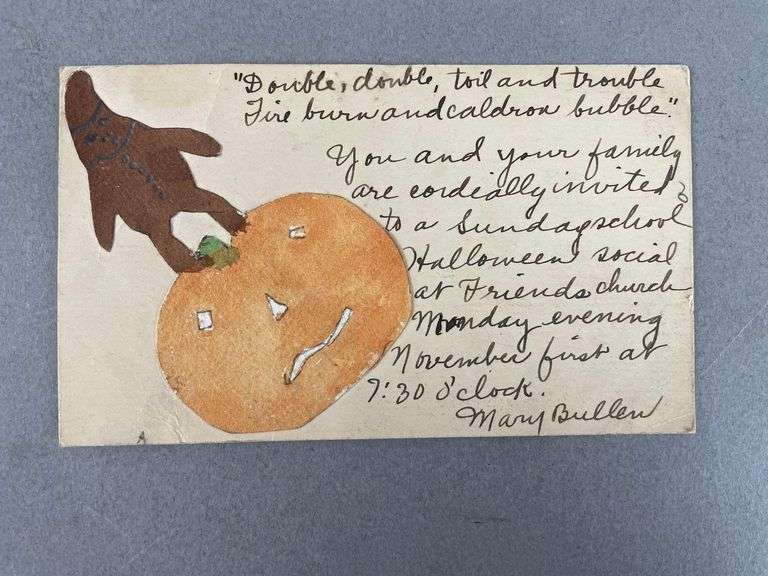 "Double, double, toil and trouble
Fire burn and caldron bubble".
You and your family
are cordially invited
to a Sunday school
Halloween social
at Friends church
Monday evening
November first at
7:30 o'clock.
Mary Bullen